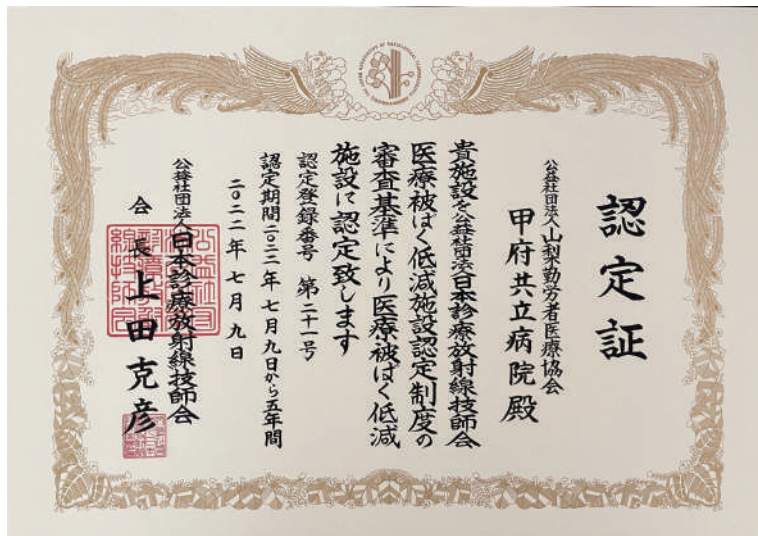 認定証
公益社団法人山梨勤労者医療協会
甲府共立病院殿
貴施設を公益社団法人日本診療放射線技師会
医療被ばく低減施設認定制度の
審査基準により医療被ばく低減
施設に認定致します
認定登録番号 第二十一号
認定期間二〇二二年七月九日から五年間
二〇二二年七月九日
公益社団法人日本診療放射線技師会
会長上田克彦